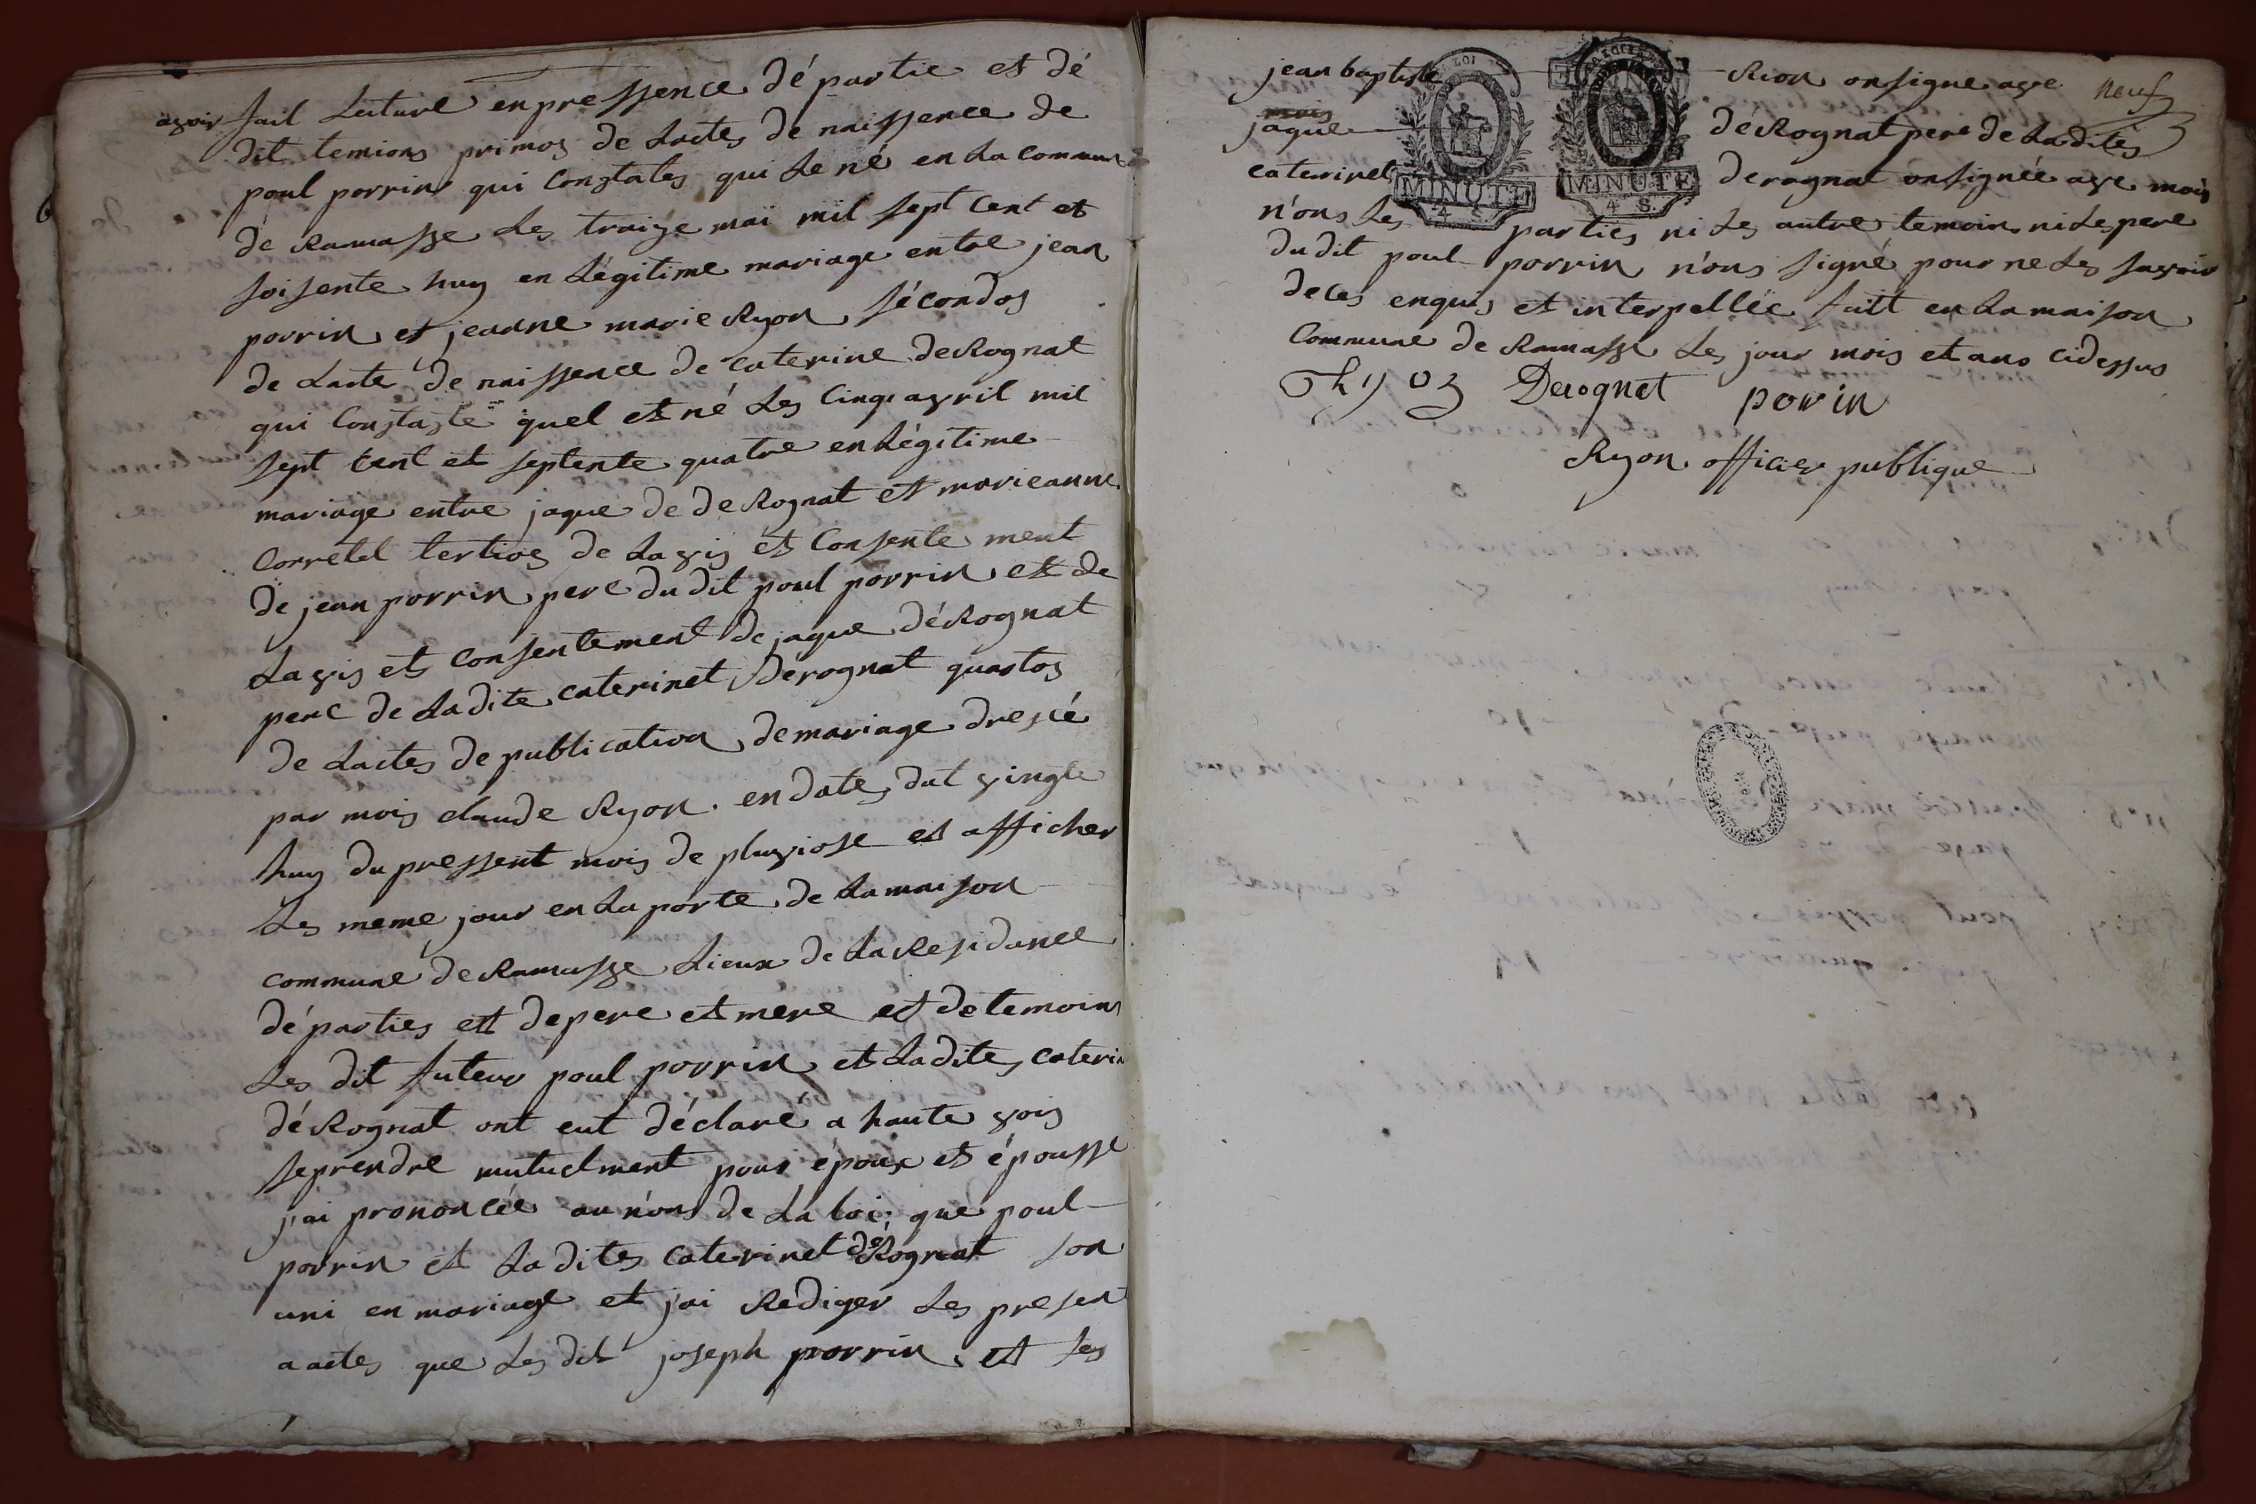 avoir fait Lecture enpressence dé partie et dé
dit temions primos de Lactes de naissence de
poul porrin qui Constates qui Le né en La commune
dé Ramasse Les traize maï mil sept Cent et
soisente huy en Légitime mariage entre jean
porrin et jeanne marie Ryon sécondos
de Lacte de naissence de Caterine deRognat
qui Constaste quel et né Les Cinq avril mil
sept cent et septente quatre en Légitime
mariage entre jaque de deRognat et marieanne
Corretel tertios de Lavis et Consente ment
de jean porrin pere du dit poul porrin et de
Lavis et Consentement de jaque déRognat
pere de Ladite Caterinet Dérognat quartos
de Lactes de publication demariage dressé
par mois claude Ryon . en dates dut vingte
huy du pressent mois de pluviose et afficher
Les meme jour en La porte de Lamaison
commune deRamasse Lieux de LaResidance
dé parties et depere et mere et detemoins
Les dit futeur poul porrin et Ladites Caterin
déRognat ont eut déclaré a haute vois
seprendre mutuelment pour époux et épousse
j'ai prononcée au nons de La loi, que poul
porrin et La dites Caterinet déRognat son
uni en mariage et j'ai Rediger Les present
aactes que Les dit joseph porrin et Les
neuf
jean baptiste Rion onsigne ave
mois
jaque déRognat pere de Ladites
caterinet derognat onsignée ave mois
LOI
MINUTE
4 S.
MINUTE
4 S.
n'ons Les parties ni Les autre temoins ni Les pere
du dit poul porrin n'ons signé pour ne Les savoir
de ces enquis et interpellée fait en La maison
Commune de Ramasse Les jour mois et ans cidessus
Derognat porin
Ryon officier publique